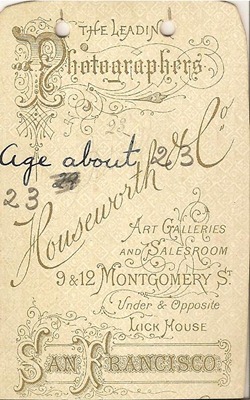 THE LEADING
Photographers
23
Age about 23
23
Houseworth & Co
ART GALLERIES
AND SALESROOM
9 & 12 MONTGOMERY ST
Under & Opposite
LICK HOUSE
SAN FRANCISCO.